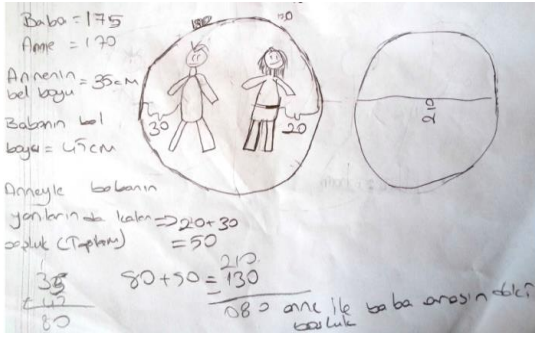 Baba = 175
Anne = 170
Annenin bel boyu = 35cm
Babanın bel boyu = 45cm
30
20
Anneyle babanın
yanlarında kalan => 20+30
boşluk (Toplam) = 50
35
+ 45
80
210
80+50 = 130
080 anne ile baba arasındaki
boşluk